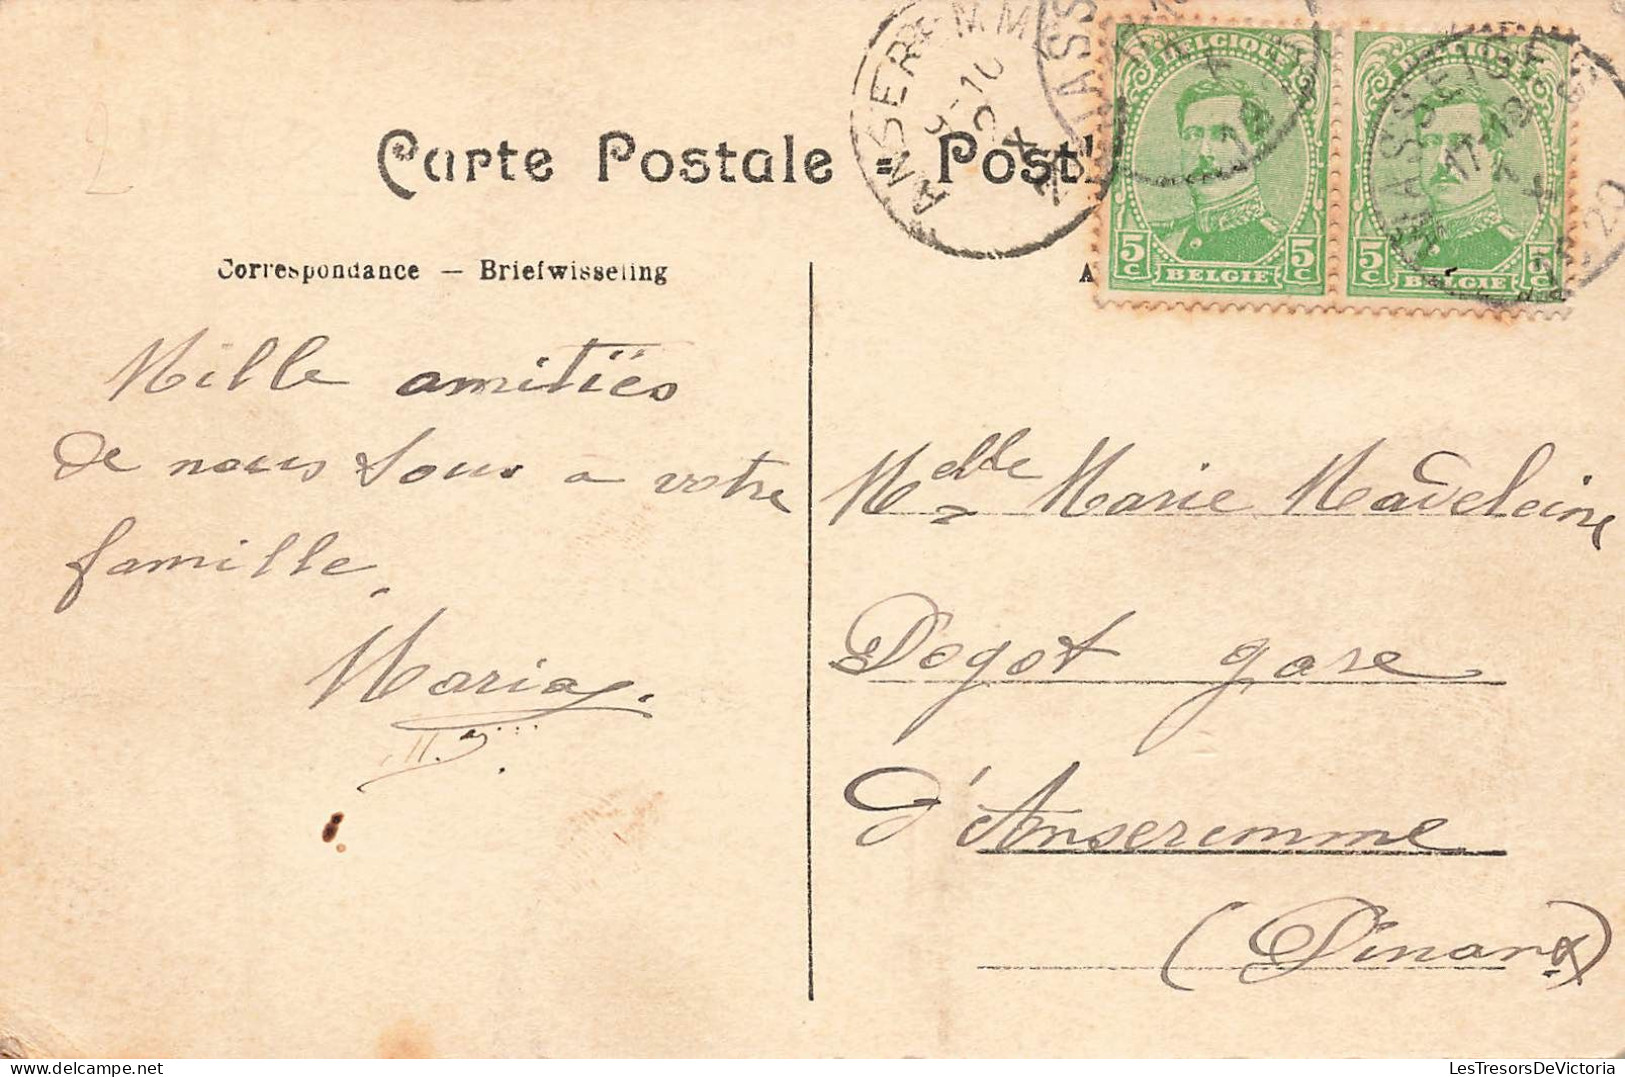 2
Carte Postale = Post
Correspondance — Briefwisseling
A
BELGIQUE
5 C
BELGIE
5 C
BELGIQUE
5 C
BELGIE
5 C
ANSEREMM
HASSE
17-18
20
Mille amitiés
de nous tous a votre
famille,
Maria.
Melle Marie Madeleine
Dogot gare
d'Anseremme
(Dinant)
LesTresorsDeVictoria